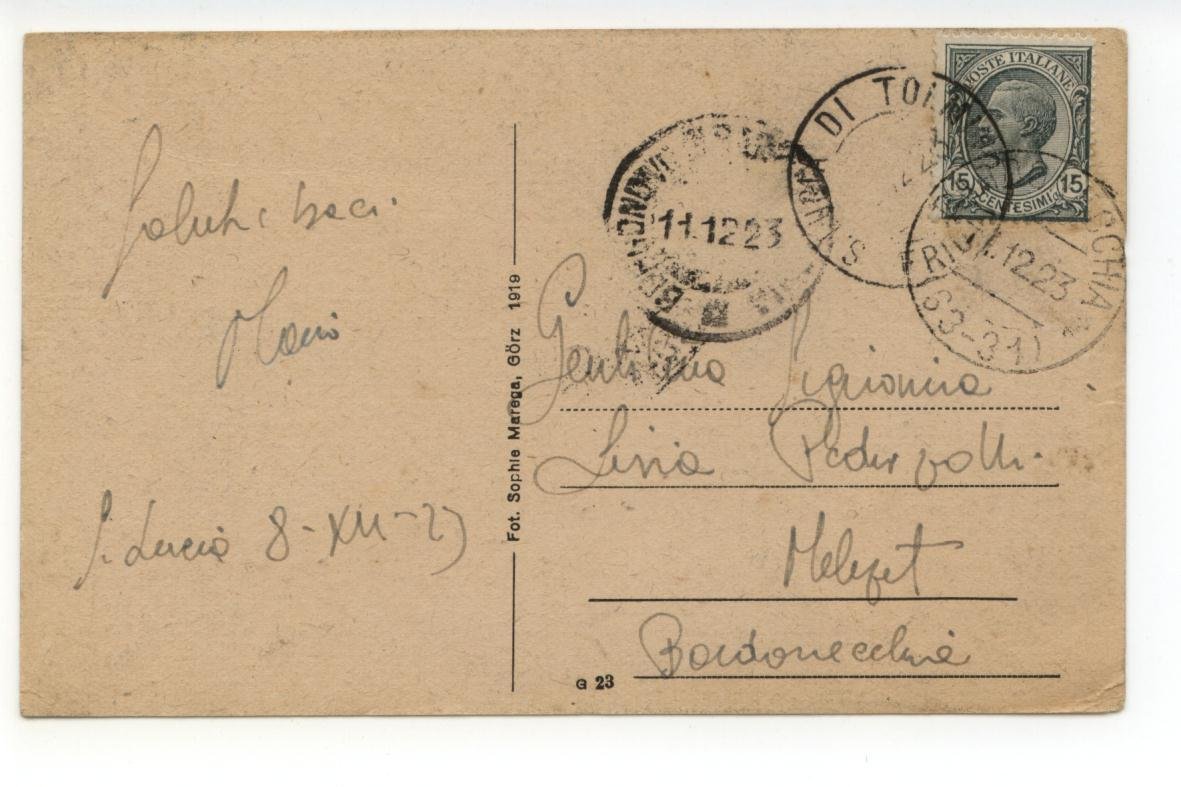 Saluti baci
Mario
S. Lucia 8-XII-23
Fot. Sophie Marega, Görz 1919
POSTE ITALIANE
15 15
CENTESIMI
S. LUCIA DI TOLMINO
11.12.23
11.12.23
(S3-31)
Gentilissima Signorina
Lisia Pederzolli
Melezet
Bardonecchia
G 23